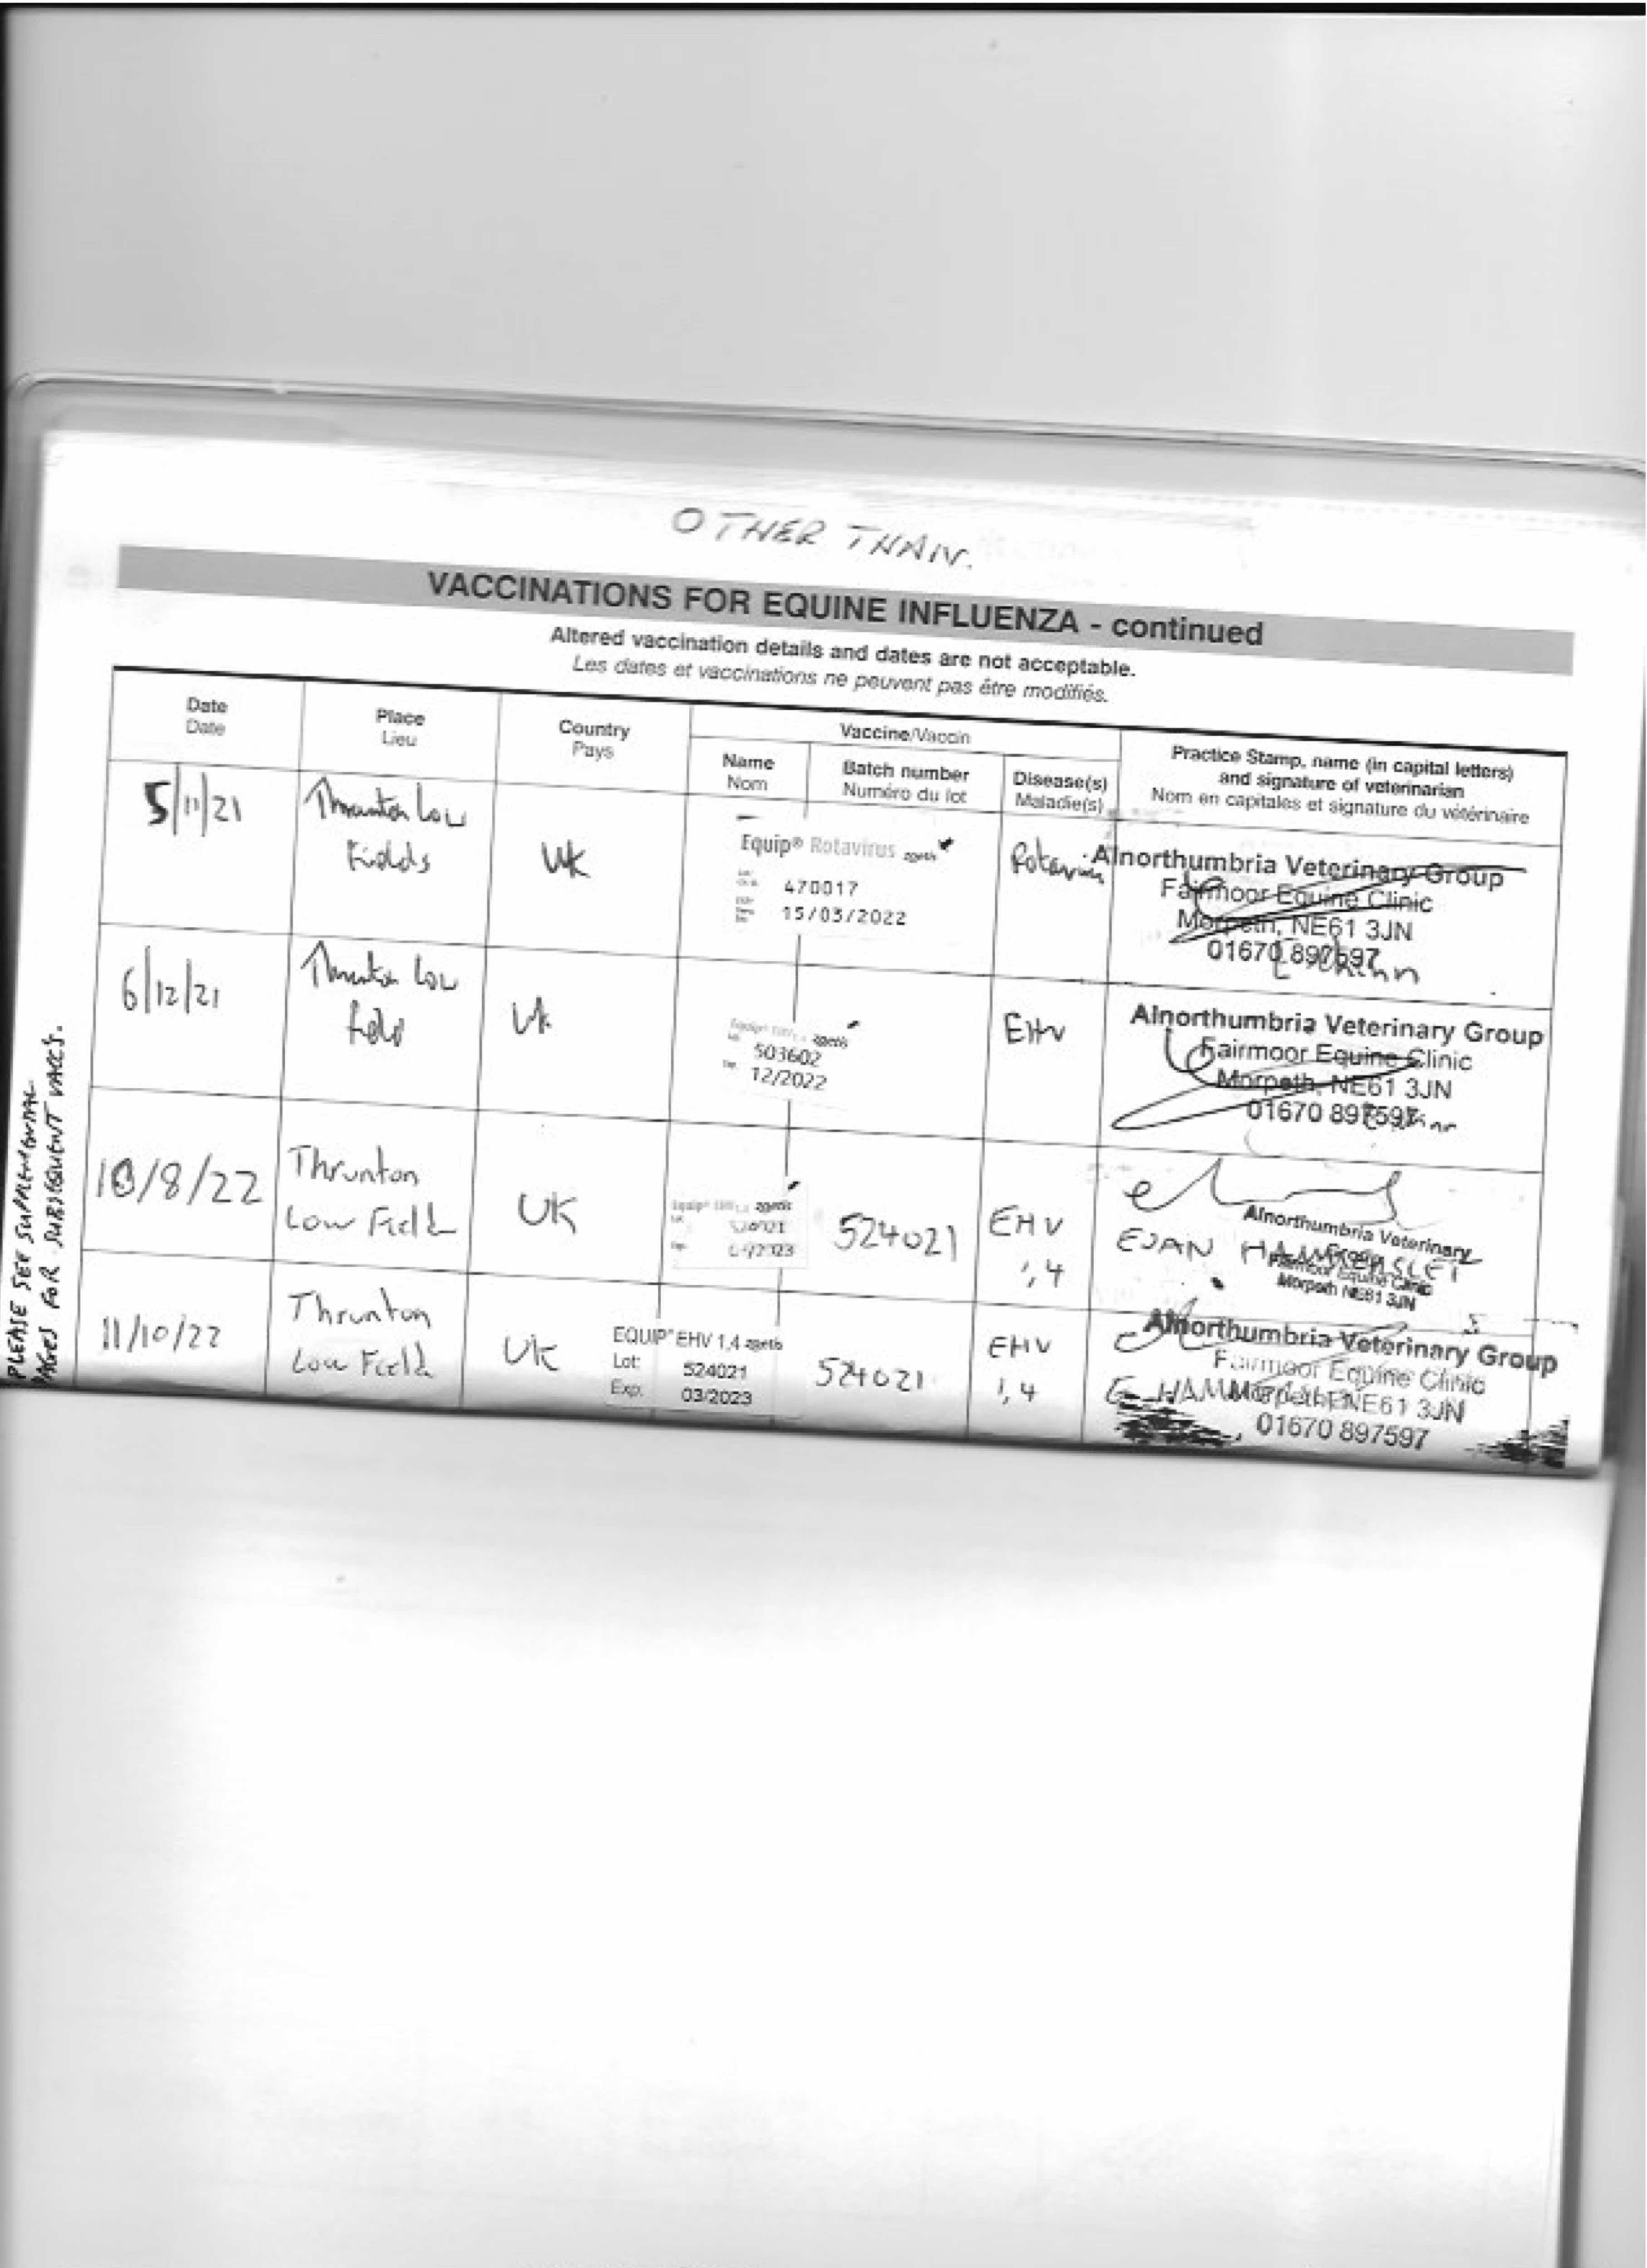 OTHER THAN.
VACCINATIONS FOR EQUINE INFLUENZA - continued
Altered vaccination details and dates are not acceptable.
Les dates et vaccinations ne peuvent pas être modifiés.
Date
Date
Place
Lieu
Country
Pays
Vaccine/Vaccin
Name
Nom
Batch number
Numéro du lot
Disease(s)
Maladie(s)
Practice Stamp, name (in capital letters)
and signature of veterinarian
Nom en capitales et signature du vétérinaire
5/11/21
Thrunton Low
Fields
UK
Equip® Rotavirus zoetis
470017
15/03/2022
Rotavirus
Alnorthumbria Veterinary Group
Fairmoor Equine Clinic
Morpeth, NE61 3JN
01670 897597
6/12/21
Thrunton Low
UK
Equip® zoetis
503602
12/2022
EHV
Alnorthumbria Veterinary Group
Fairmoor Equine Clinic
Morpeth, NE61 3JN
01670 897597
/8/22
Thrunton
Low Field
UK
Equip® zoetis
524021
524021
EHV
1,4
Alnorthumbria Veterinary
Group
Fairmoor Equine Clinic
Morpeth NE61 3JN
11/10/22
Thrunton
Low Field
UK
EQUIP® EHV 1,4 zoetis
Lot: 524021
Exp: 03/2023
524021
EHV
1,4
Alnorthumbria Veterinary Group
Fairmoor Equine Clinic
Morpeth, NE61 3JN
01670 897597
PLEASE SEE SUPPLEMENTAL
PAGES FOR SUBSEQUENT VACCS.